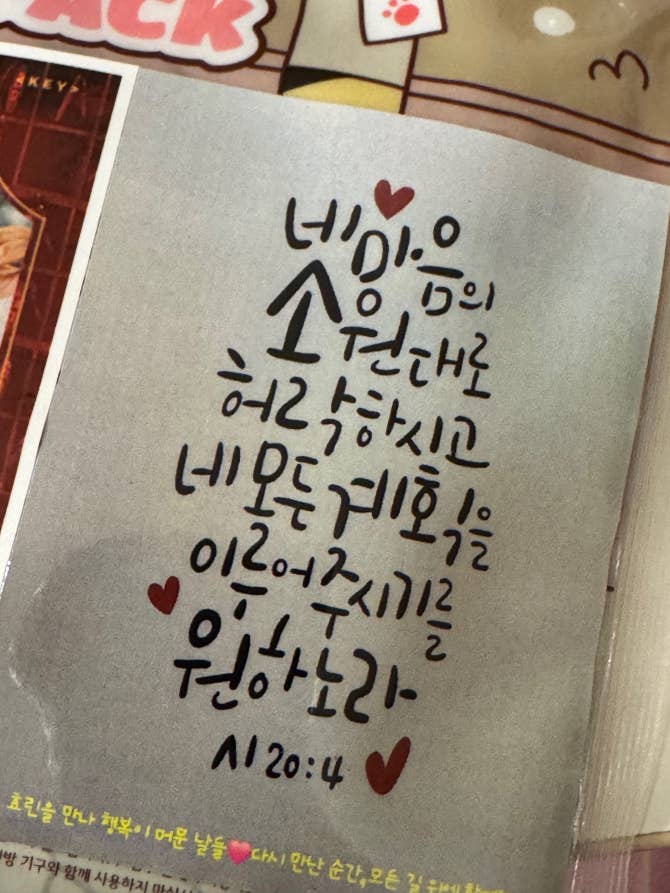 ACK
<KEY>
네 마음의
소원대로
허락하시고
네 모든 계획을
이루어 주시기를
원하노라
시 20:4
효린을 만나 행복이 머문 날들 다시 만난 순간, 모든 길 위에
기구와 함께 사용하지